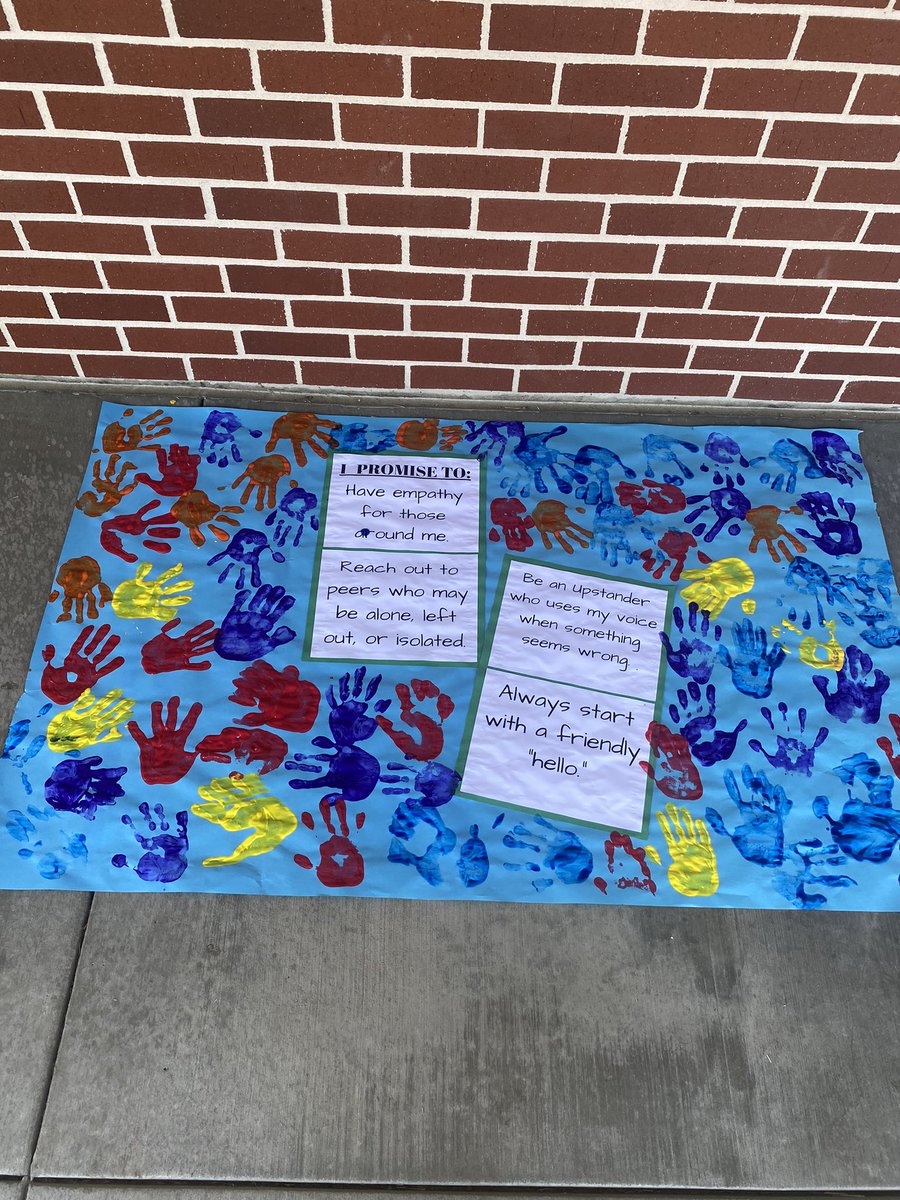 I PROMISE TO:
Have empathy
for those
around me.
Reach out to
peers who may
be alone, left
out, or isolated.
Be an Upstander
who uses my voice
when something
seems wrong. .
Always start
with a friendly
"hello."